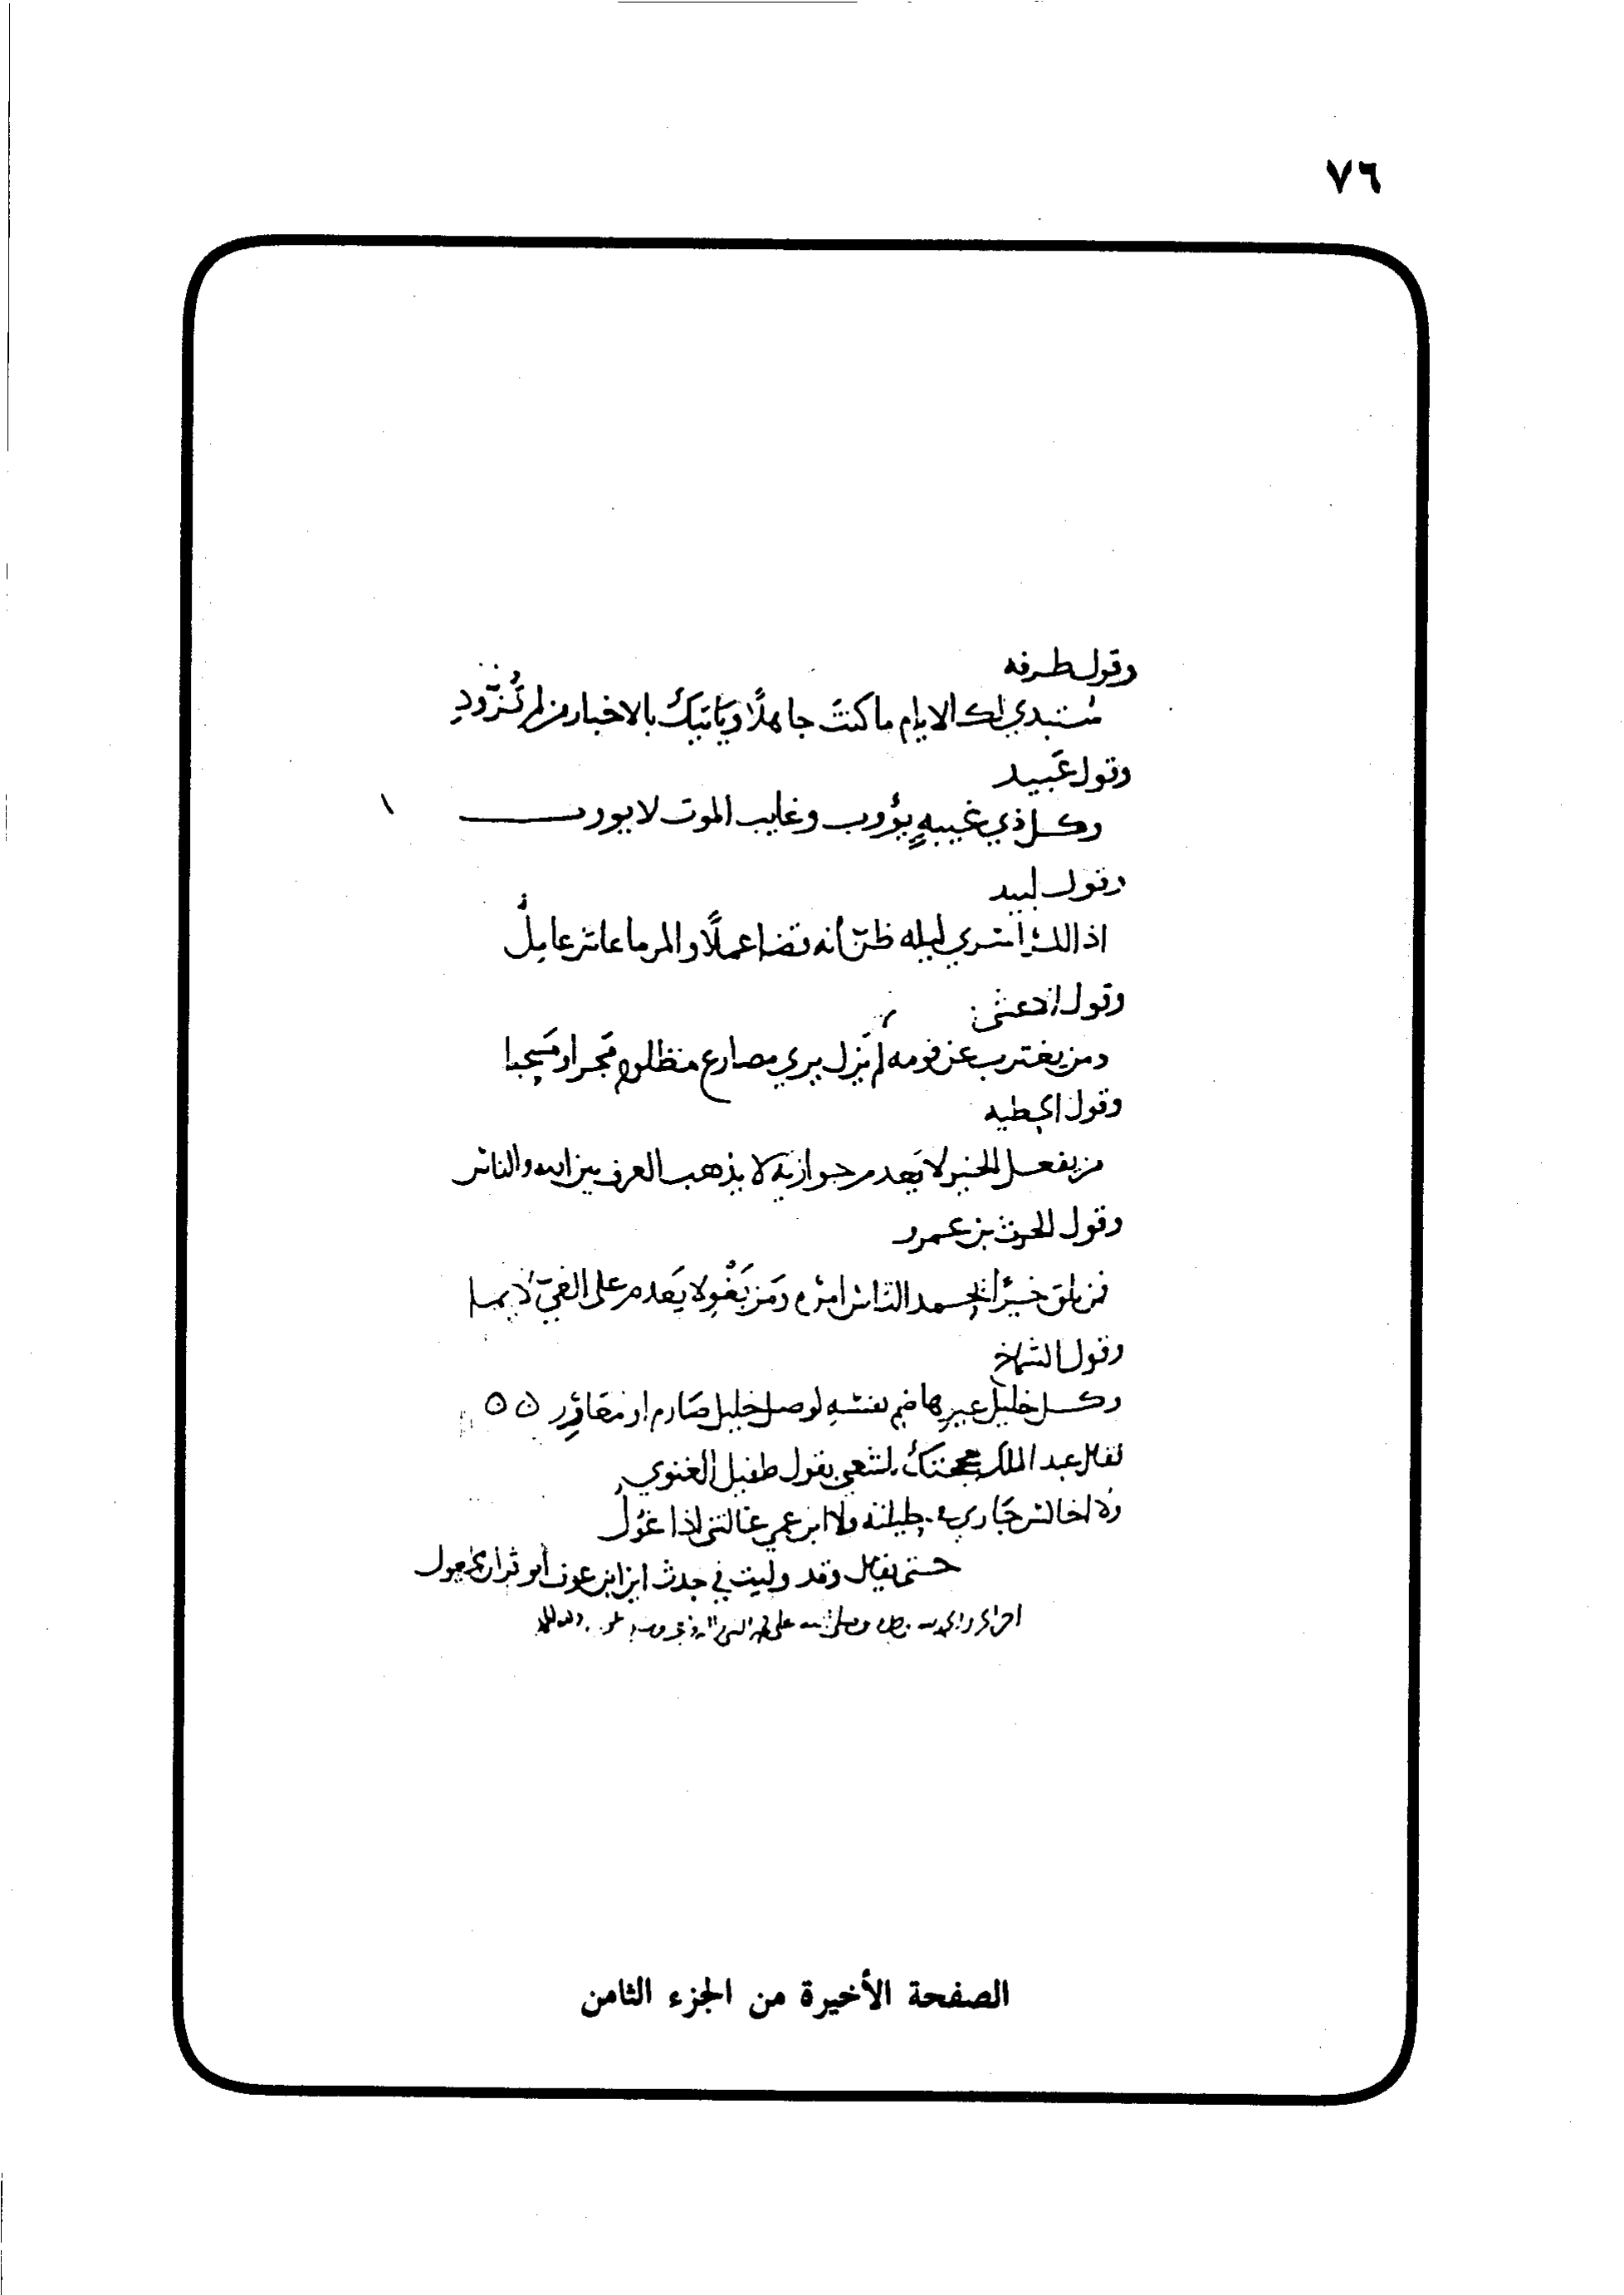 ٧٦
وقول طرفه
ستبدي لك الايام ما كنتَ جاهلًا وياتيك بالاخبار من لم تُزَوّدِ
وقول عَبيد
وكل ذي غيبهٍ يؤوب وغايب الموت لا يووب
وقول لبيد
اذا المرءُ اسري ليله ظنّ أنه قضا عملًا والمر ما عاش عامِلُ
وقول الاعشى
ومن يغترب عن قومه لم يَزل يري مصارع مظلومٍ مَجرا ومَسحبا
وقول الحطيه
من يفعل الخير لا يَعدم جوازيه لا يذهب العرف بين الله والناس
وقول الحرث بن عمرو
فمن يلق خيرًا يحمد الناس امره ومَن يَغْوِ لا يَعدم على الغيّ لايما
وقول الشماخ
وكل خليل غير هاضم نفسه لوصل خليل صارم او مُعَارِز
فقال عبد الملك حججتك يا شعبي بقول طفيل الغنوي
ولا اخالس جَاري في حليلته ولا ابن عمي غالتني اذا غُولُ
حتى يقال وقد وليت في جدث اين ابن عوف أبو قران مجعول
الصفحة الأخيرة من الجزء الثامن